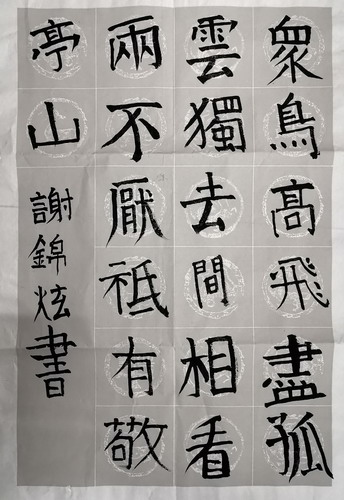 眾鳥高飛盡孤
雲獨去間相看
兩不厭祗有敬
亭山
謝錦炫書